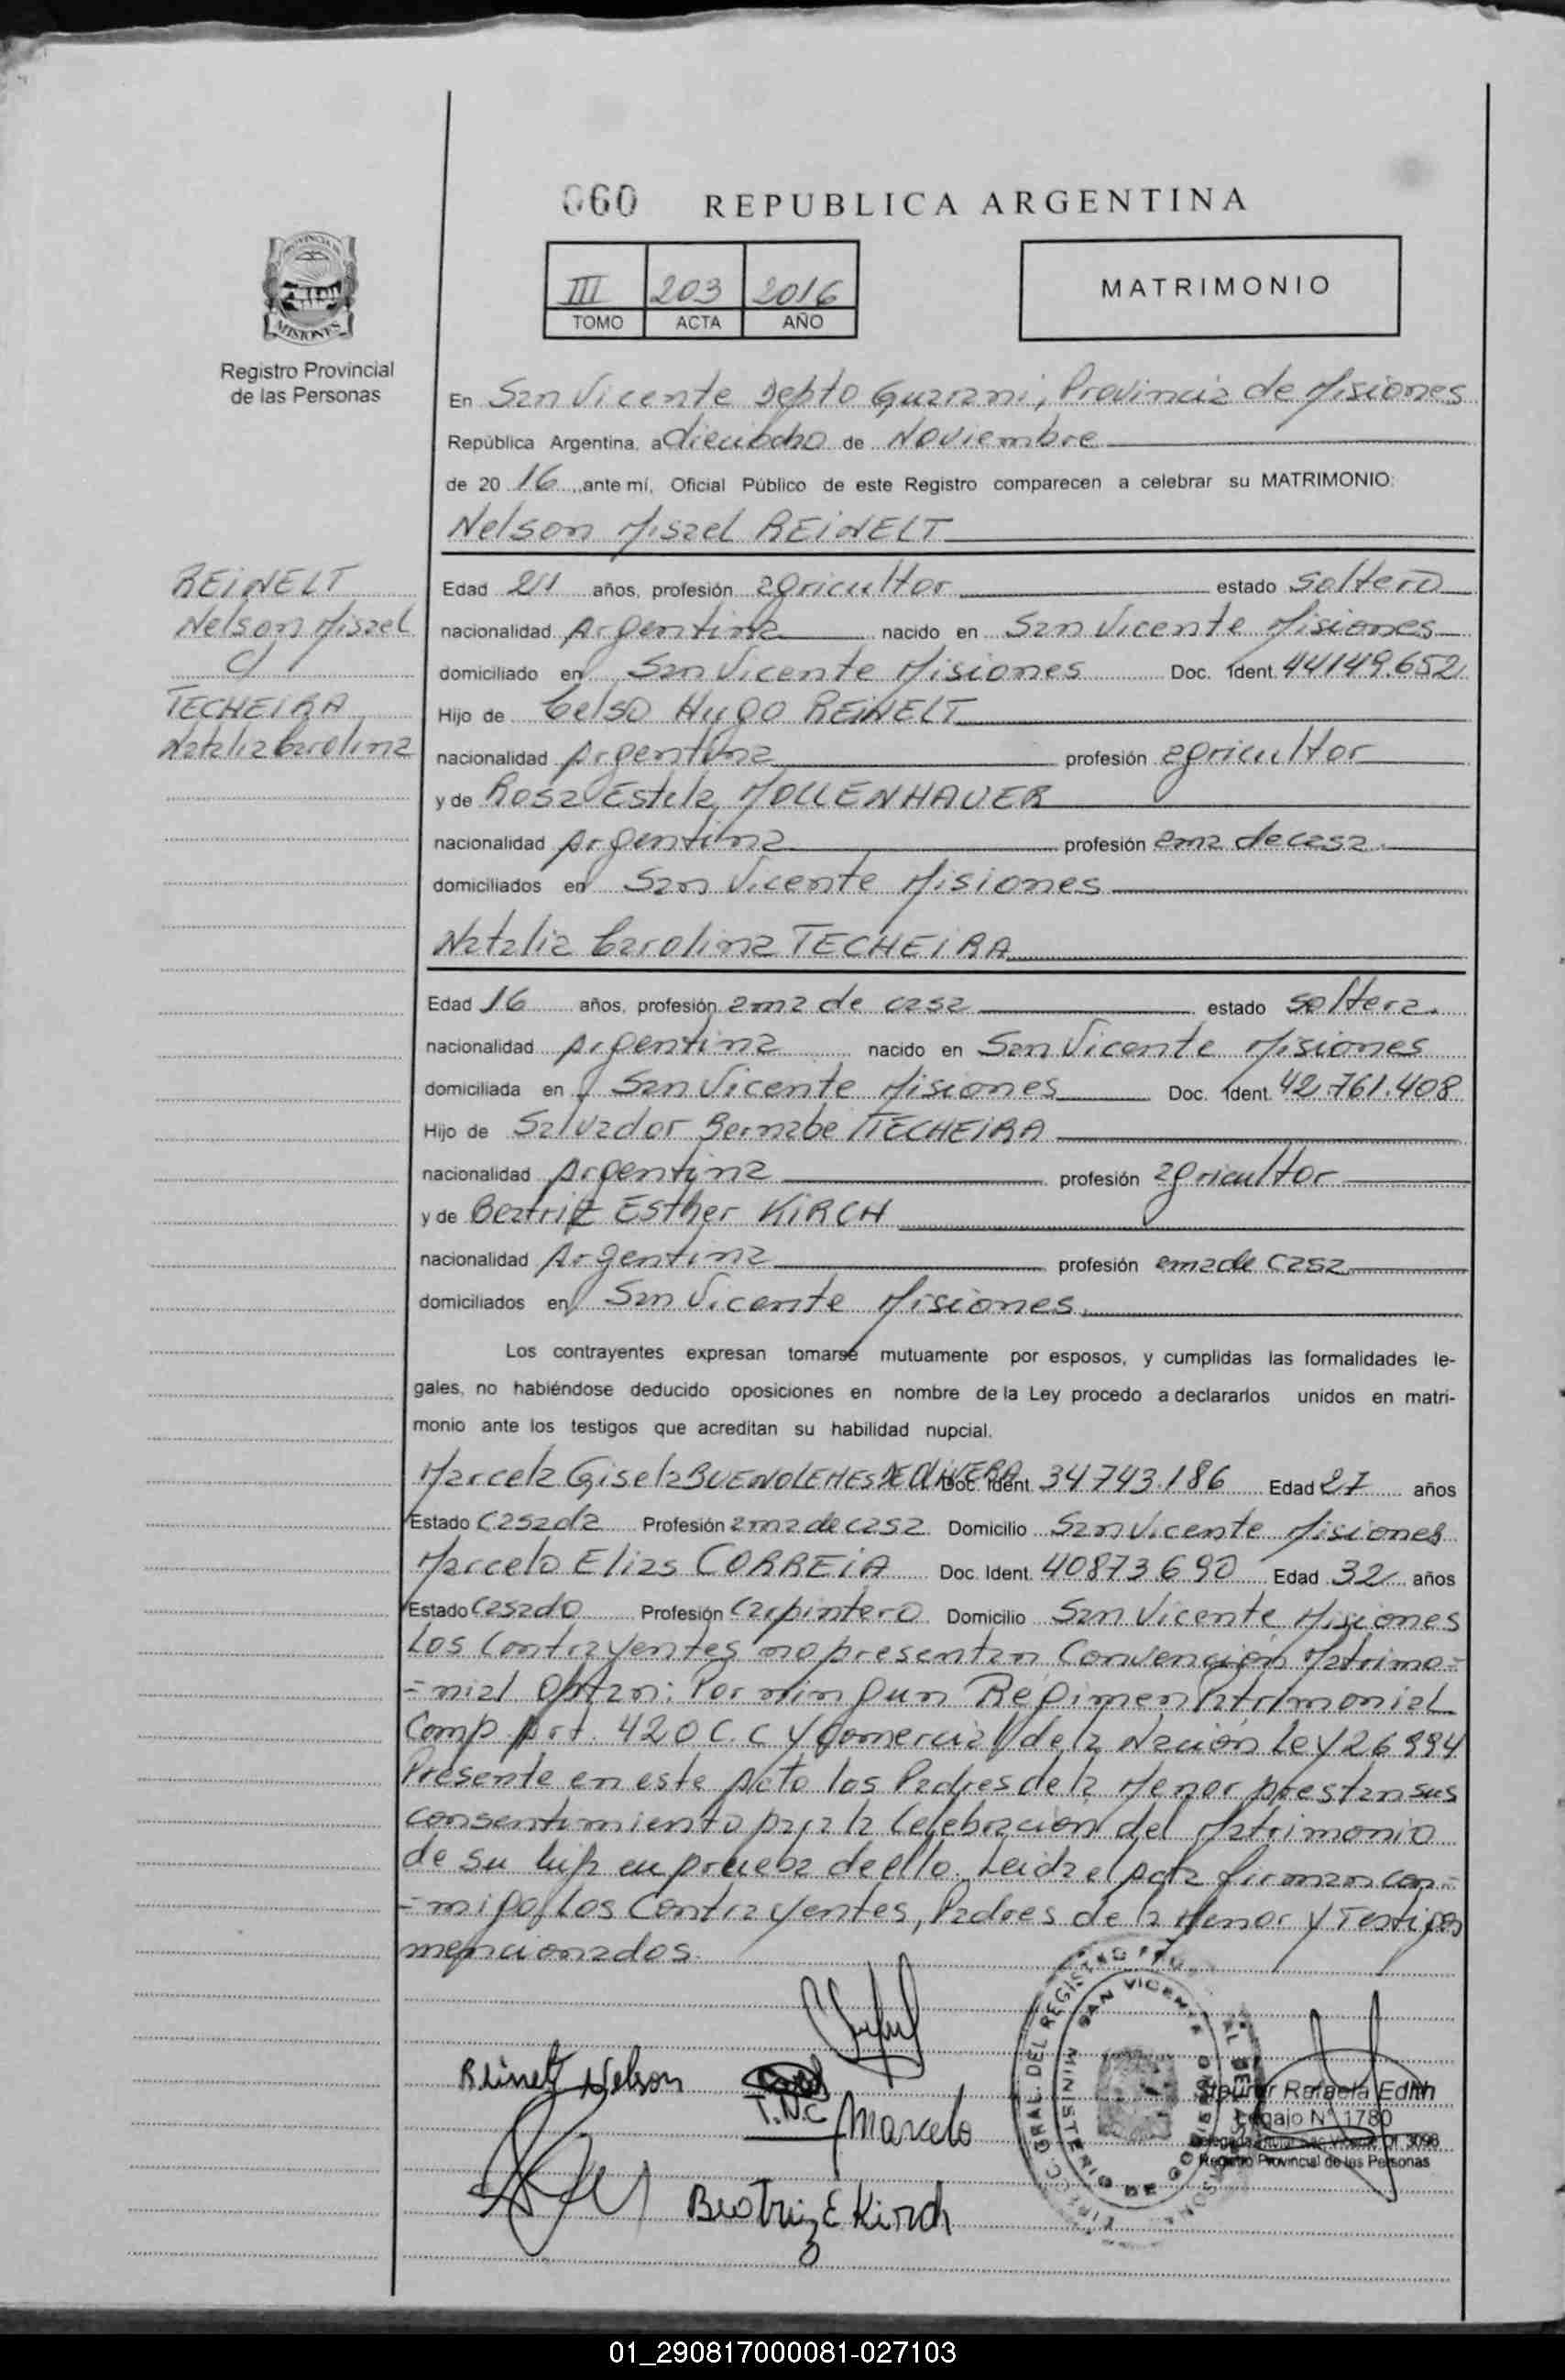 060 REPUBLICA ARGENTINA
III 203 2016
TOMO ACTA AÑO
MATRIMONIO
MISIONES
Registro Provincial
de las Personas
En San Vicente Depto Guarani, Provincia de Misiones
República Argentina, a dieciocho de Noviembre
de 20 16 ante mí, Oficial Público de este Registro comparecen a celebrar su MATRIMONIO:
Nelson Misael REINELT
REINELT
Nelson Misael
c/
TECHEIRA
Natalia Carolina
Edad 21 años, profesión agricultor estado Soltero
nacionalidad Argentina nacido en San Vicente Misiones
domiciliado en San Vicente Misiones Doc. Ident. 44149.652
Hijo de Celso Hugo REINELT
nacionalidad Argentina profesión agricultor
y de Rosa Estela MOLLENHAUER
nacionalidad Argentina profesión ama de casa.
domiciliados en San Vicente Misiones
Natalia Carolina TECHEIRA
Edad 16 años, profesión ama de casa estado Soltera.
nacionalidad Argentina nacido en San Vicente Misiones
domiciliada en San Vicente Misiones Doc. Ident. 42.761.408
Hijo de Salvador Bernabe TECHEIRA
nacionalidad Argentina profesión agricultor
y de Beatriz Esther KIRCH
nacionalidad Argentina profesión ama de casa
domiciliados en San Vicente Misiones
Los contrayentes expresan tomarse mutuamente por esposos, y cumplidas las formalidades le-
gales, no habiéndose deducido oposiciones en nombre de la Ley procedo a declararlos unidos en matri-
monio ante los testigos que acreditan su habilidad nupcial.
Marcela Gisela BUENO LEMES DE OLIVERA Doc. Ident. 34743.186 Edad 27 años
Estado Casada Profesión ama de casa Domicilio San Vicente Misiones
Marcelo Elias CORREIA Doc. Ident. 40873690 Edad 32 años
Estado Casado Profesión Carpintero Domicilio San Vicente Misiones
Los Contrayentes no presentan Convención Matrimo=
=nial Optan: Por ningun Regimen Patrimonial
Comp Art. 420 C.C y Comercial de la Nación Ley 26994
Presente en este Acto los Padres de la Menor prestan sus
consentimiento para la Celebración del Matrimonio
de su hija en prueba de ello. Leida el Acta firman con=
=migo los Contrayentes, Padres de la Menor y Testigos
mencionados.
Reinelt Nelson
T.N.C
Marcelo
Beatriz E Kirch
GRAL. DEL REGISTRO
SAN VICENTE
MINISTERIO DE GOBIERNO
Rafaela Edith
Legajo N° 1780
Registro Provincial de las Personas
01_290817000081-027103